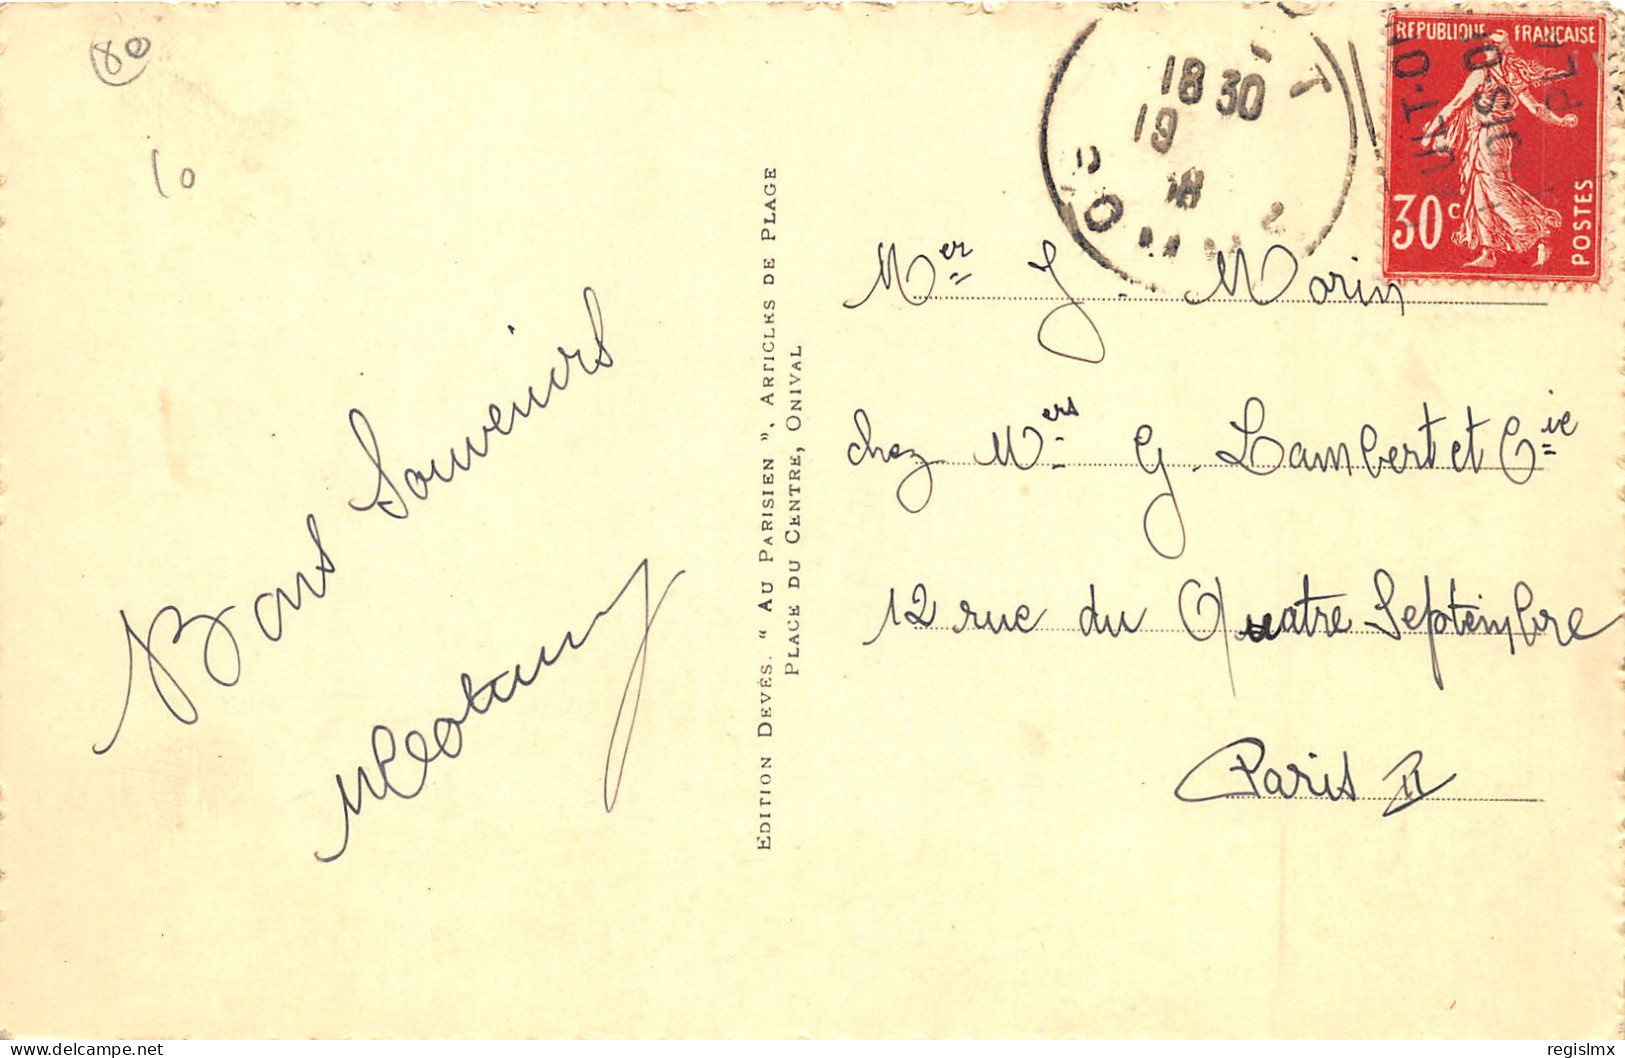 80
10
Bons Souvenirs
EDITION DEVÉS. “ AU PARISIEN ”, ARTICLES DE PLAGE
PLACE DU CENTRE, ONIVAL
18 30
19
RÉPUBLIQUE FRANÇAISE
30c
POSTES
Mer J. Morin
chez Mers G. Lambert et Cie
12 rue du Quatre Septembre
Paris II
regislmx